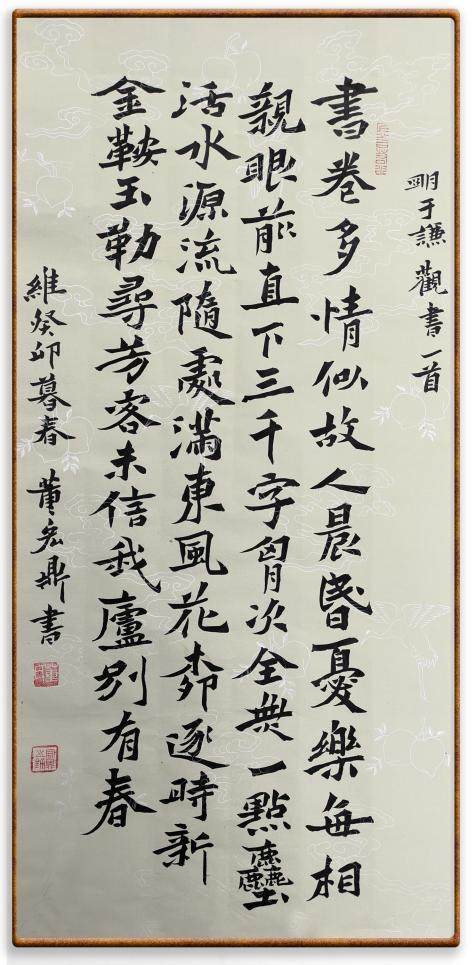 明于謙觀書一首
書卷多情似故人晨昬憂樂每相
親眼前直下三千字胷次全無一點塵
活水源流隨處滿東風花柳逐時新
金鞍玉勒尋芳客未信我廬別有春
維癸卯暮春 董宏鼎書